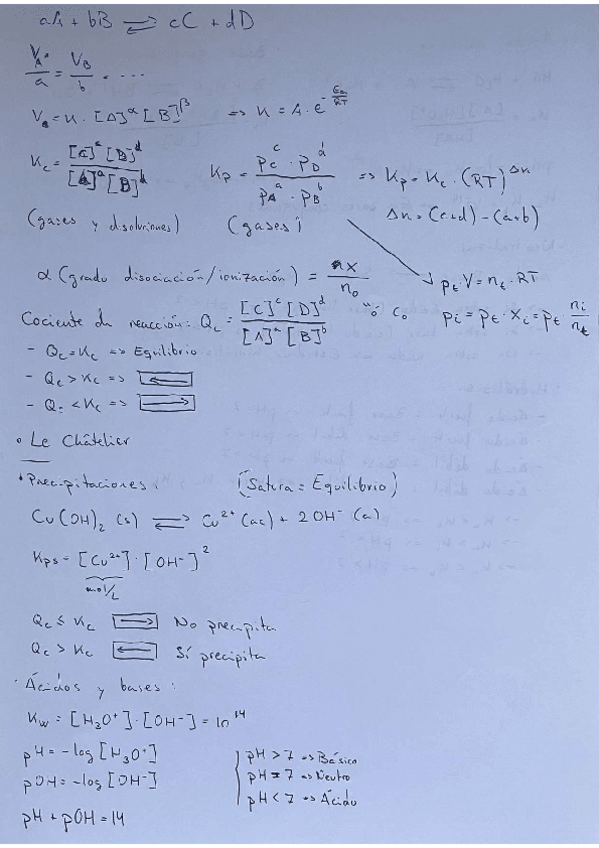 aA + bB ⇌ cC + dD
V_A/a = V_B/b = ....
V_a = K · [A]^α [B]^β => K = A · e^(-Ea/RT)
K_c = [C]^c [D]^d / [A]^a [B]^b   K_p = p_C^c · p_D^d / p_A^a · p_B^b => K_p = K_c · (RT)^Δn
(gases y disoluciones) (gases) Δn = (c+d) - (a+b)
α (grado disociación/ionización) = nx / n_0   p_t · V = n_t · RT
"o" C_0   p_i = p_t · X_i = p_t · n_i/n_t
Cociente de reacción: Q_c = [C]^c [D]^d / [A]^a [B]^b
- Q_c = K_c => Equilibrio
- Q_c > K_c => ←
- Q_c < K_c => →
• Le Châtelier
• Precipitaciones: (Satura = Equilibrio)
Cu(OH)₂ (s) ⇌ Cu²⁺ (ac) + 2OH⁻ (a)
K_ps = [Cu²⁺] · [OH⁻]²
mol/L
Q_c ≤ K_c → No precipita
Q_c > K_c ← Sí precipita
· Ácidos y bases:
K_w = [H₃O⁺] · [OH⁻] = 10^14
pH = -log [H₃O⁺]
pOH = -log [OH⁻]
pH + pOH = 14
pH > 7 => Básico
pH = 7 => Neutro
pH < 7 => Ácido